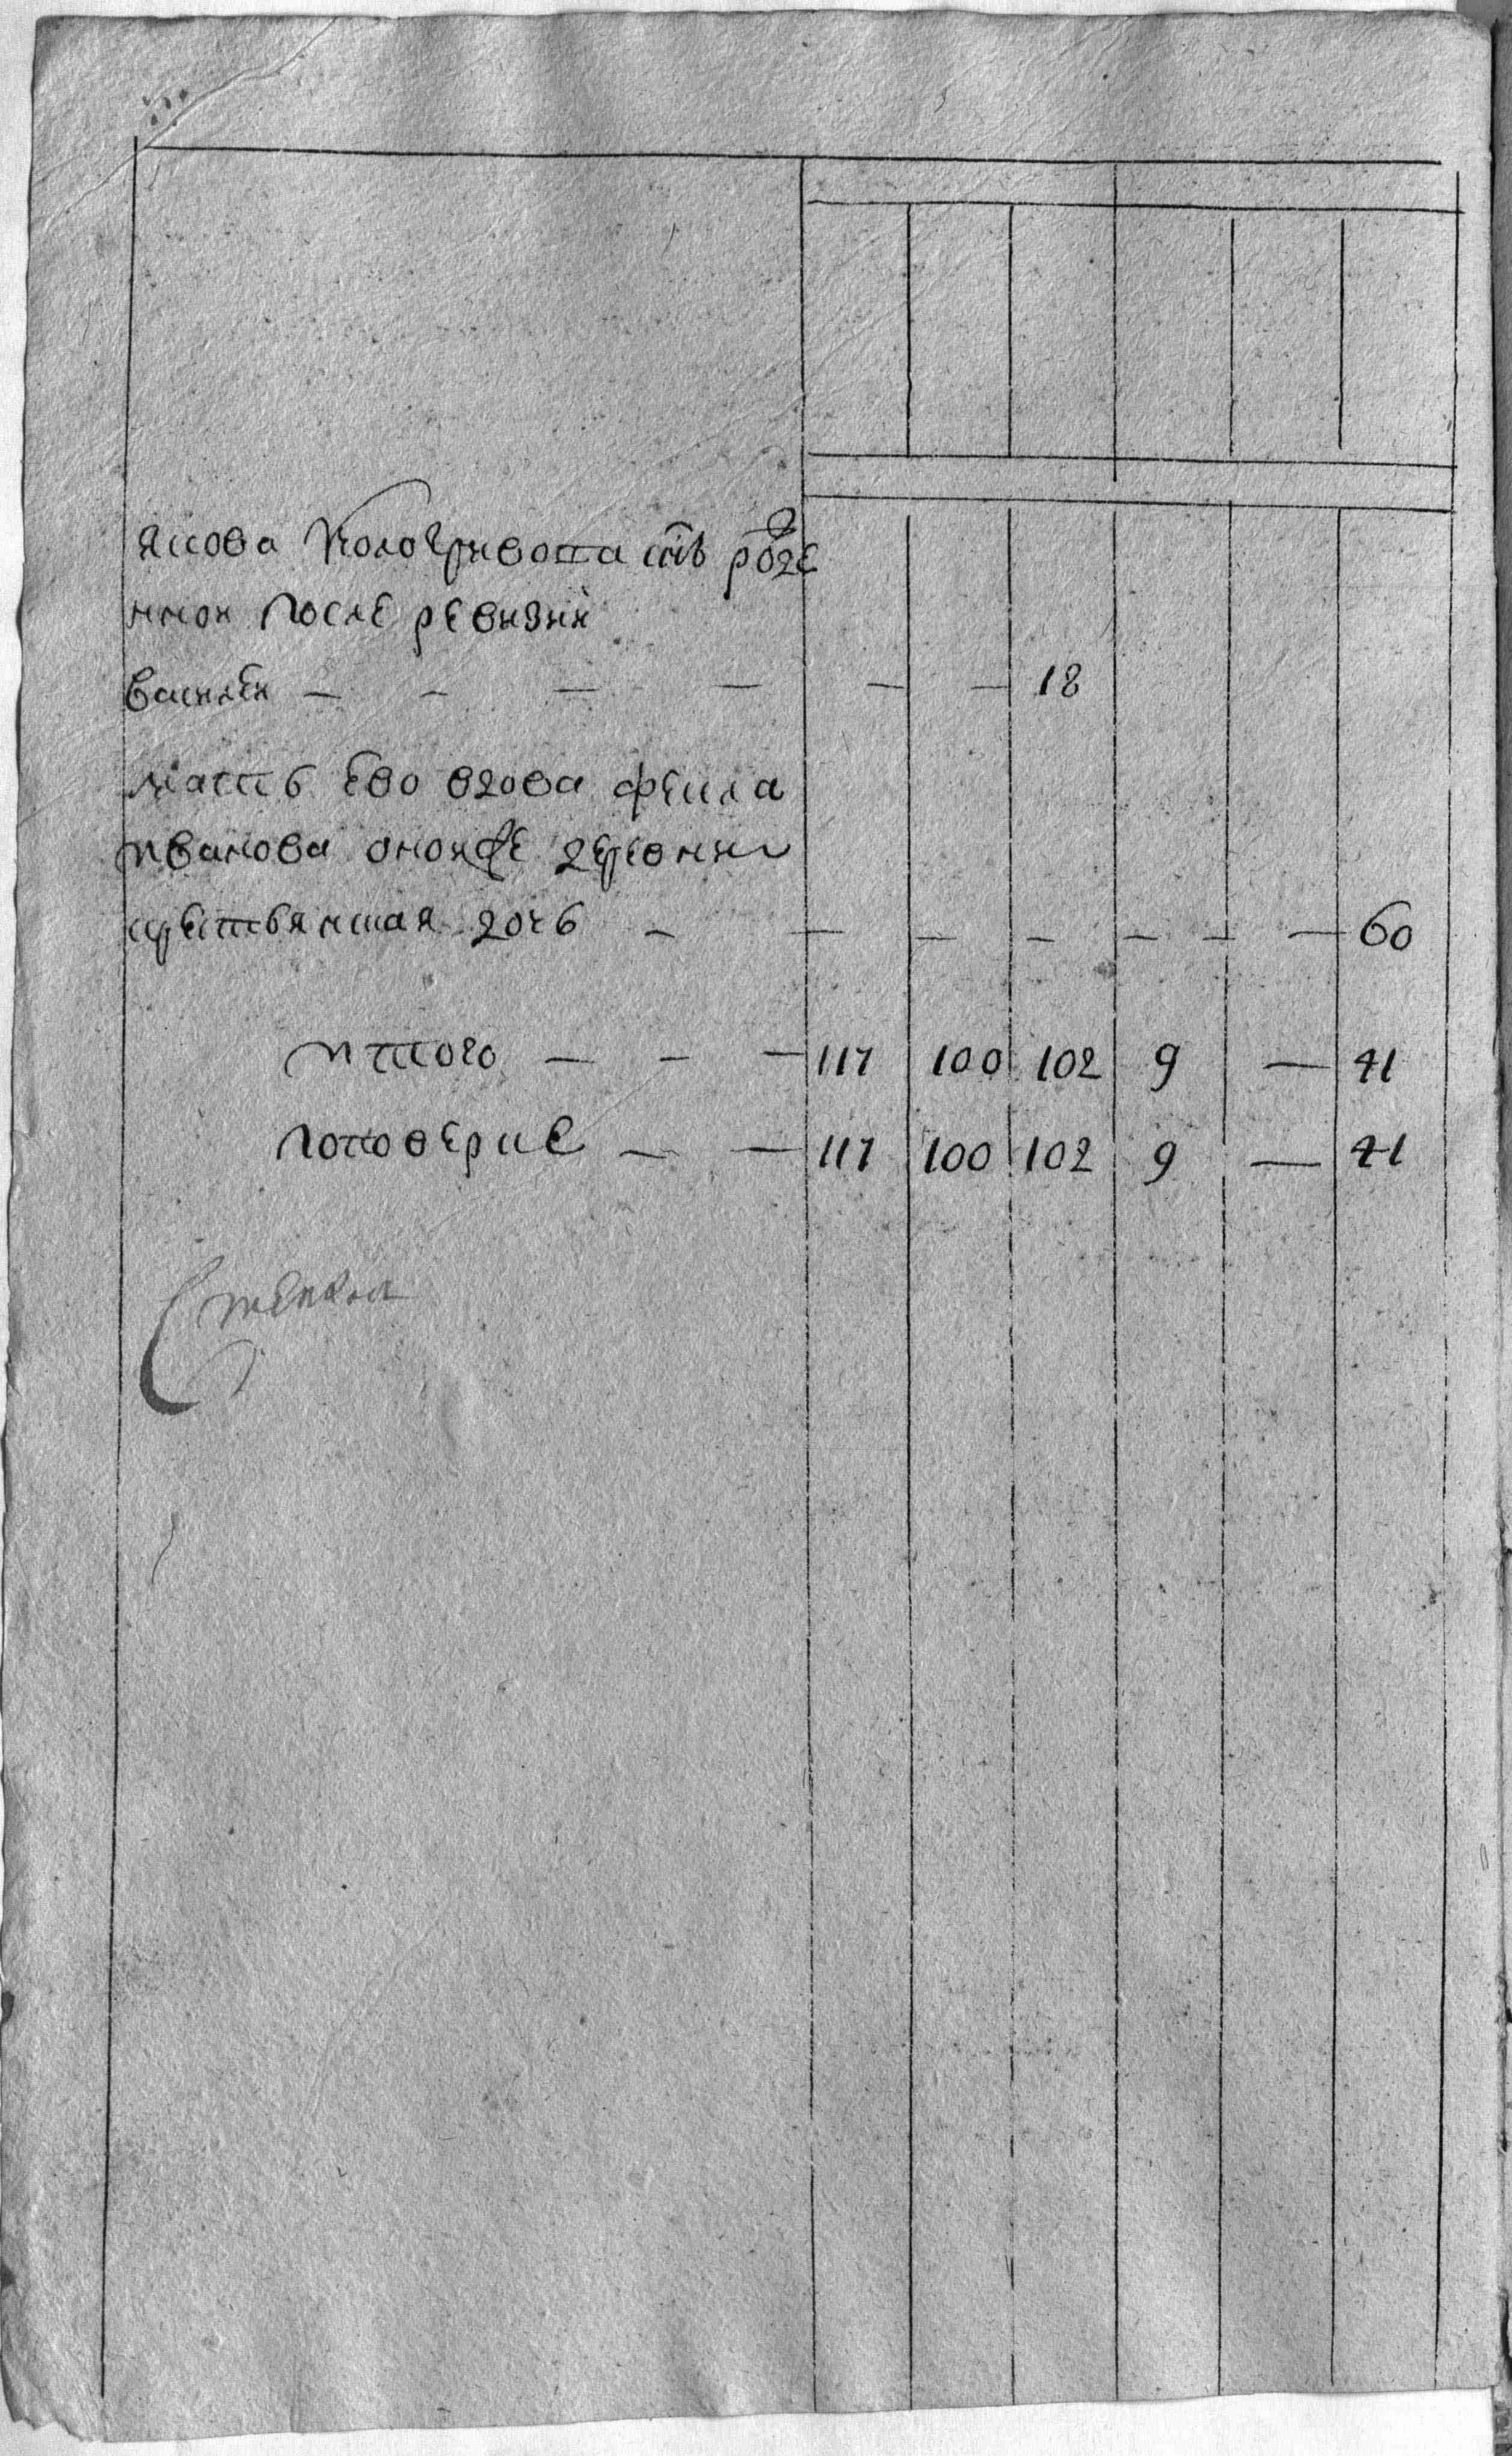 якова кологривова сн̃ъ роже
нной после ревизии
василеи — — — — — — 18
мать ево вдова фекла
иванова оной же деревни
крестьянская дочь — — — — — — — 60
итого — — — 117 100 102 9 — 41
поповерке — — 117 100 102 9 — 41